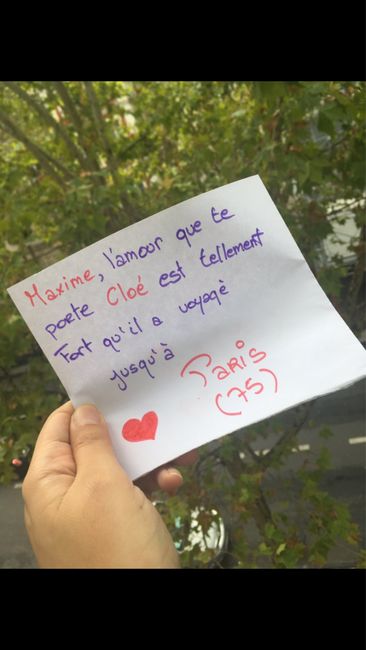 Maxime, l'amour que te
porte Cloé est tellement
Fort qu'il a voyagè
jusqu'à
PARIS
(75)